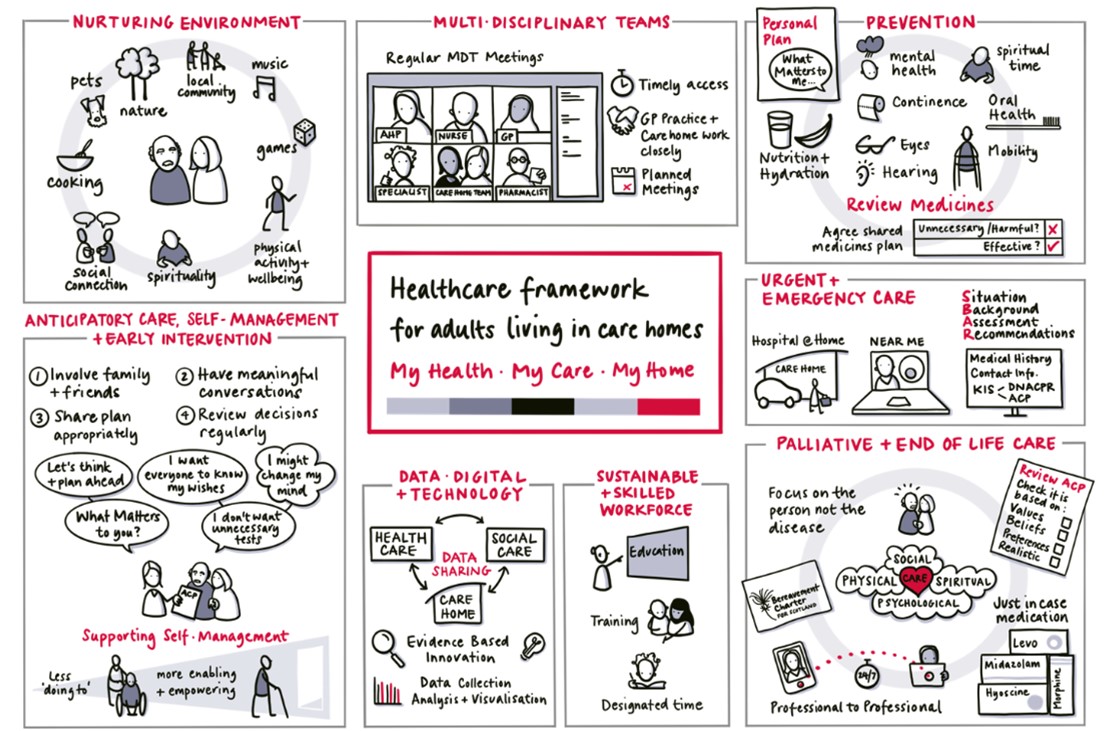 NURTURING ENVIRONMENT
pets
nature
local
community
music
games
cooking
social
connection
spirituality
physical
activity +
wellbeing
MULTI-DISCIPLINARY TEAMS
Regular MDT Meetings
AHP
NURSE
GP
SPECIALIST
CARE HOME TEAM
PHARMACIST
Timely access
GP Practice +
Care home work
closely
Planned
Meetings
PREVENTION
Personal
Plan
What
Matters to
me...
mental
health
spiritual
time
Continence
Oral
Health
Nutrition +
Hydration
Eyes
Hearing
Mobility
Review Medicines
Agree shared
medicines plan
Unnecessary/Harmful?
Effective?
Healthcare framework
for adults living in care homes
My Health · My Care · My Home
ANTICIPATORY CARE, SELF-MANAGEMENT
+ EARLY INTERVENTION
1 Involve family
+ friends
2 Have meaningful
conversations
3 Share plan
appropriately
4 Review decisions
regularly
Let's think
+ plan ahead
I want
everyone to know
my wishes
I might
change my
mind
What Matters
to you?
I don't want
unnecessary
tests
ACP
Supporting Self-Management
Less
'doing to'
more enabling
+ empowering
DATA · DIGITAL
+ TECHNOLOGY
HEALTH
CARE
SOCIAL
CARE
DATA
SHARING
CARE
HOME
Evidence Based
Innovation
Data Collection
Analysis + Visualisation
SUSTAINABLE
+ SKILLED
WORKFORCE
Education
Training
Designated time
URGENT +
EMERGENCY CARE
Situation
Background
Assessment
Recommendations
Hospital @ Home
CARE HOME
NEAR ME
Medical History
Contact Info.
KIS
DNACPR
ACP
PALLIATIVE + END OF LIFE CARE
Focus on the
person not the
disease
Review ACP
Check it is
based on:
Values
Beliefs
Preferences
Realistic
SOCIAL
PHYSICAL
CARE
SPIRITUAL
PSYCHOLOGICAL
Bereavement
Charter
FOR SCOTLAND
24/7
Professional to Professional
Just in case
medication
Levo
Midazolam
Hyoscine
Morphine